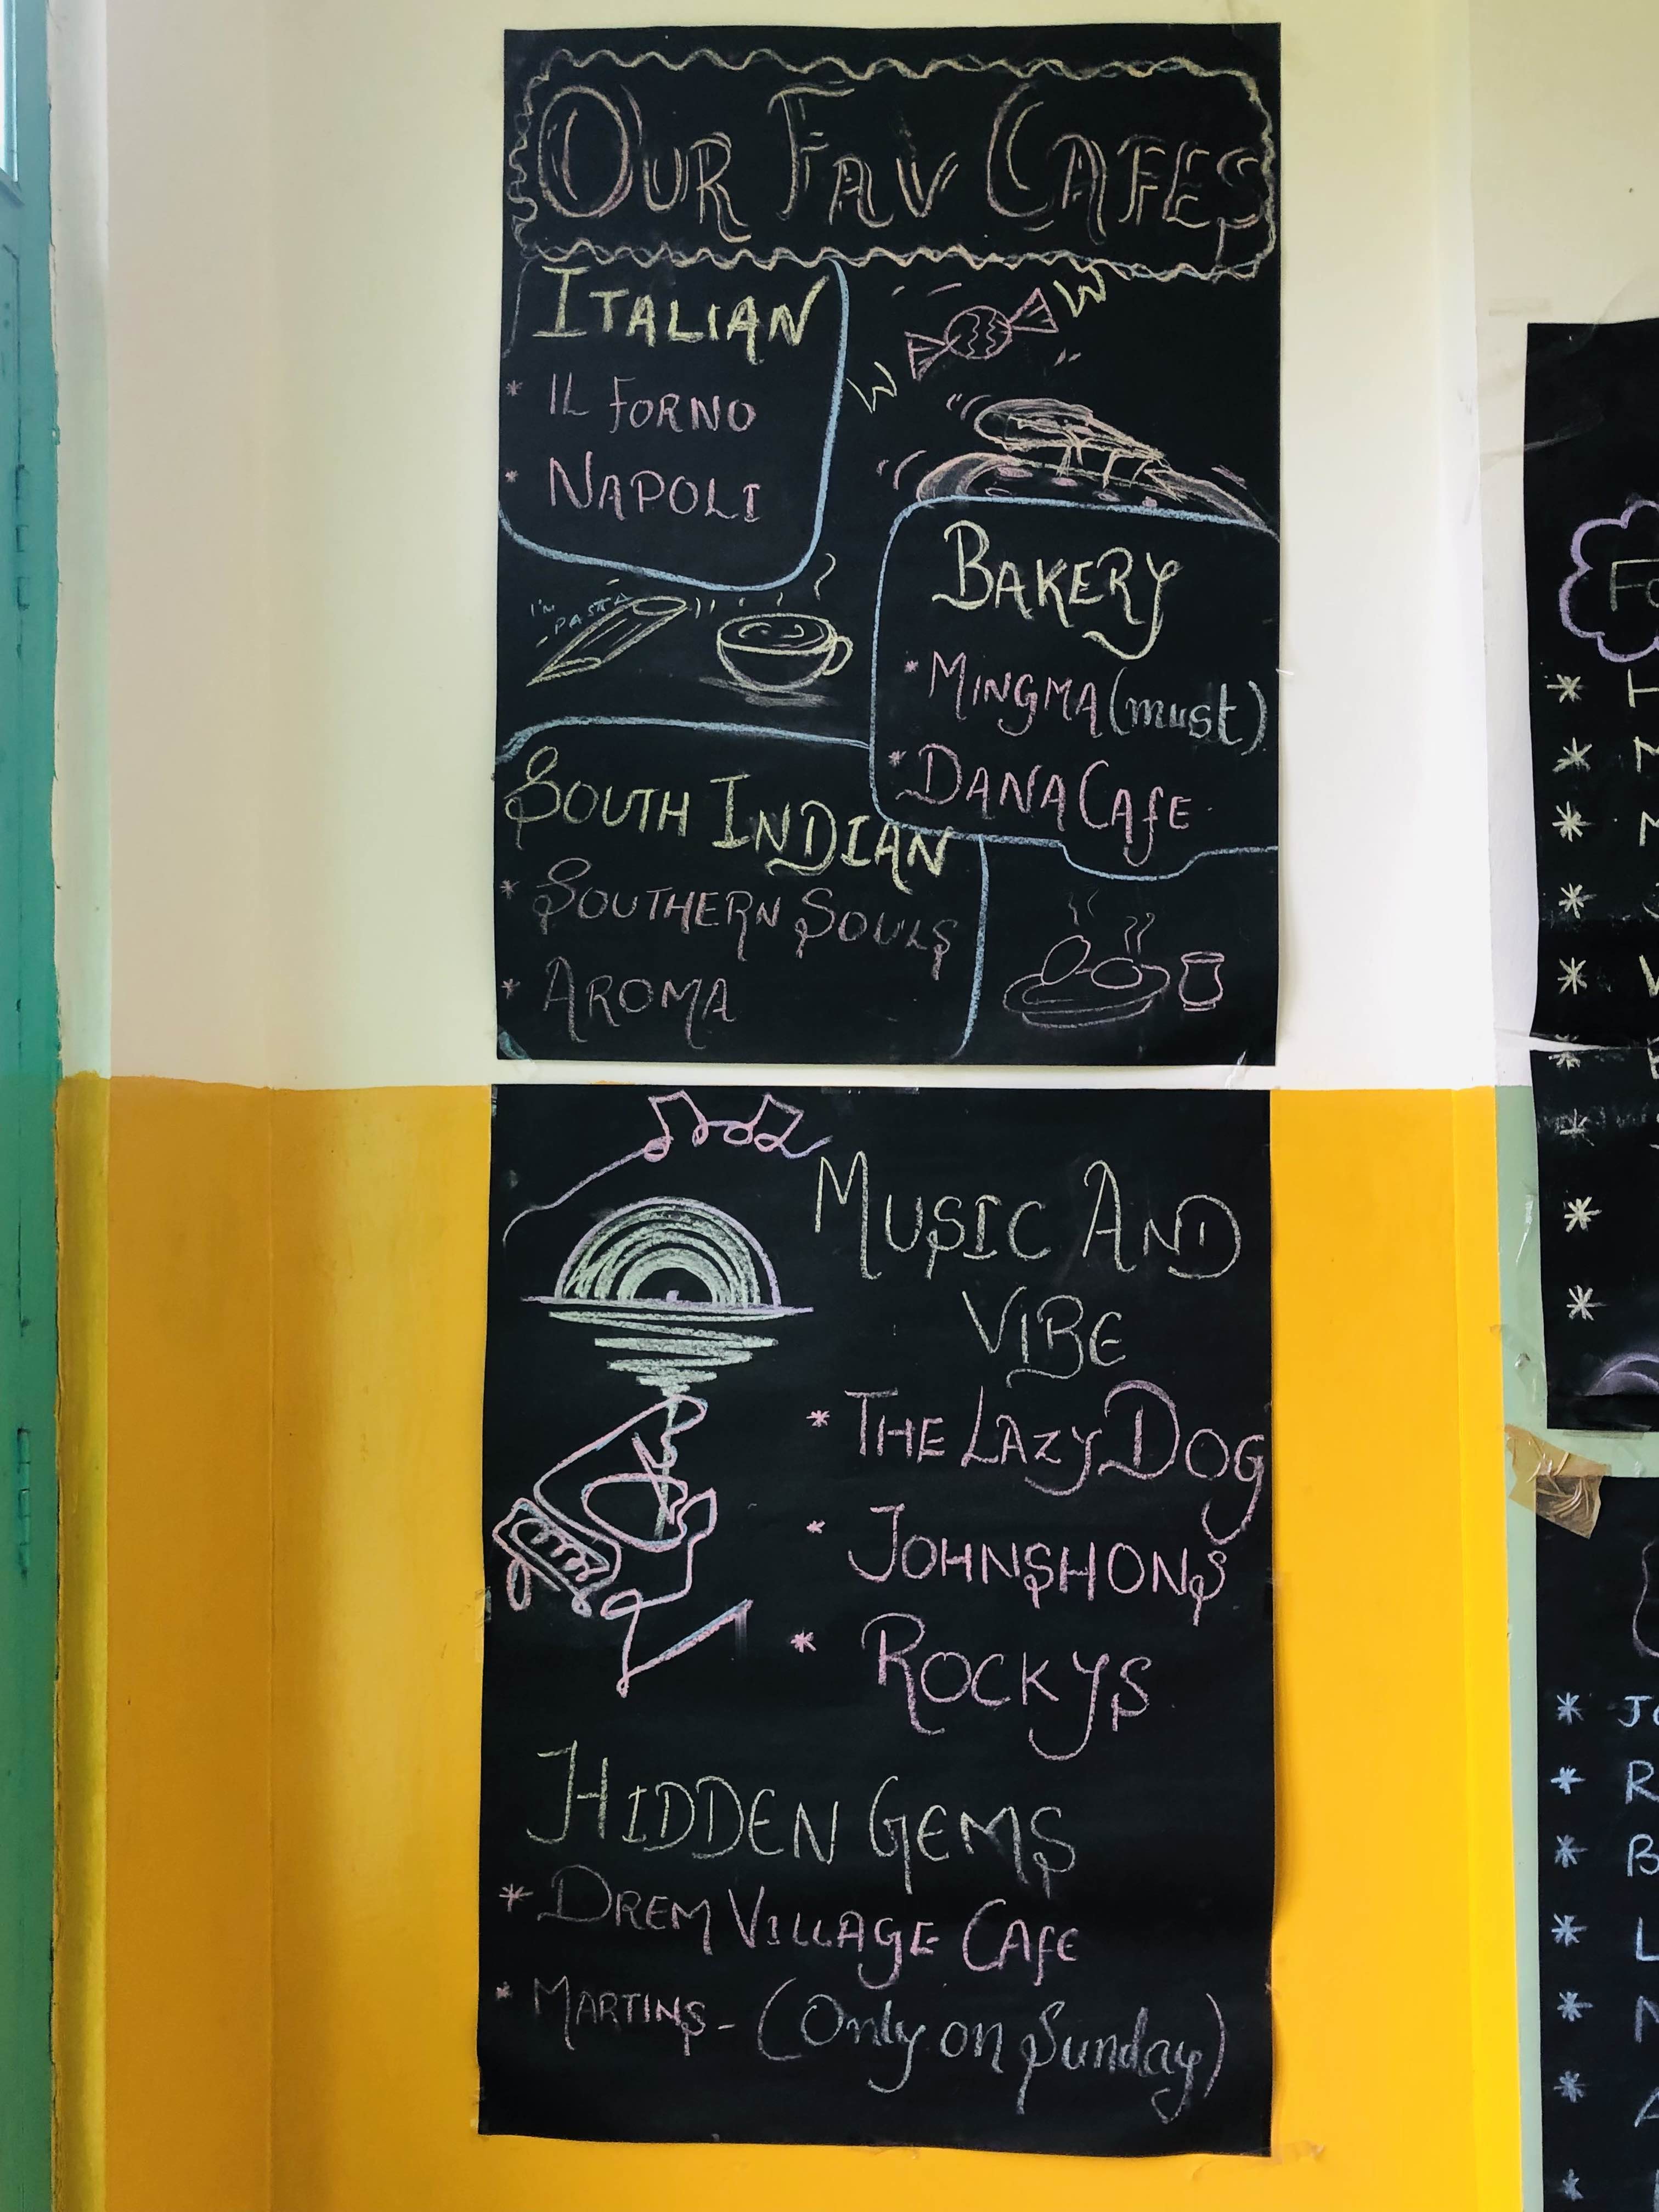 OUR FAV CAFES
ITALIAN
* IL FORNO
* NAPOLI
I'M PASTA
BAKERY
* MINGMA (must)
* DANA CAFE
SOUTH INDIAN
* SOUTHERN SOULS
* AROMA
MUSIC AND
VIBE
* THE LAZY DOG
* JOHNSHONS
* ROCKYS
HIDDEN GEMS
* DREM VILLAGE CAFE
* MARTINS - (Only on Sunday)